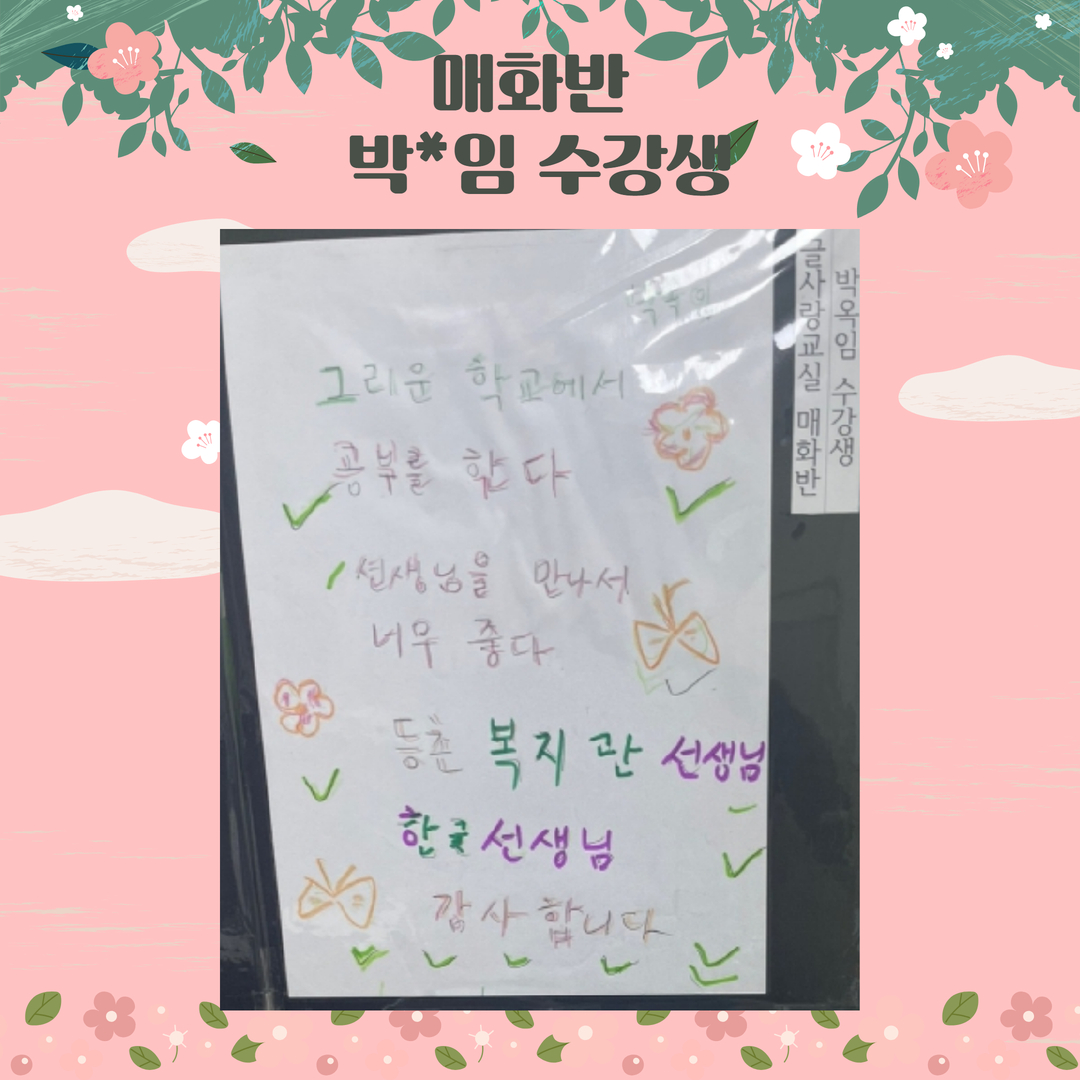 매화반
박*임 수강생
그리운 학교에서
공부를 한다
선생님을 만나서
너우 좋다
등촌 복지관 선생님
한글 선생님
감사합니다
박옥임 수강생
글사랑교실 매화반